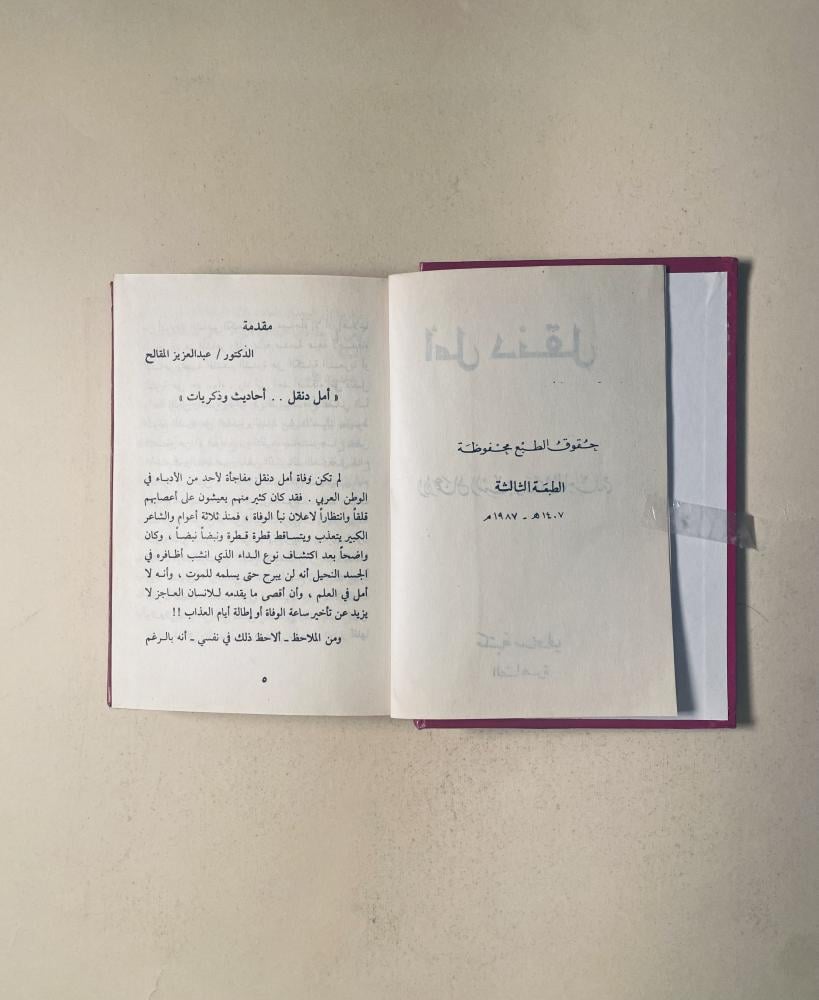 حقوق الطبع محفوظة
الطبعة الثالثة
١٤٠٧ هـ - ١٩٨٧ م
مقدمة
الدكتور / عبدالعزيز المقالح
« أمل دنقل . . أحاديث وذكريات »
لم تكن وفاة أمل دنقل مفاجأة لأحد من الأدباء في
الوطن العربي . فقد كان كثير منهم يعيشون على أعصابهم
قلقاً وانتظاراً لاعلان نبأ الوفاة ، فمنذ ثلاثة أعوام والشاعر
الكبير يتعذب ويتساقط قطرة قطرة ونبضاً نبضاً ، وكان
واضحاً بعد اكتشاف نوع الداء الذي انشب أظافره في
الجسد النحيل أنه لن يبرح حتى يسلمه للموت ، وأنه لا
أمل في العلم ، وأن أقصى ما يقدمه للانسان العاجز لا
يزيد عن تأخير ساعة الوفاة أو إطالة أيام العذاب !!
ومن الملاحظ ــ ألاحظ ذلك في نفسي ــ أنه بالرغم
٥